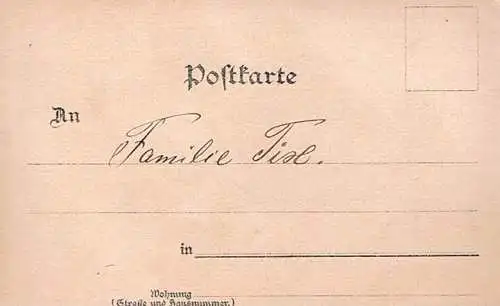 Postkarte
An
Familie
in
Wohnung
(Straße und Hausnummer.)